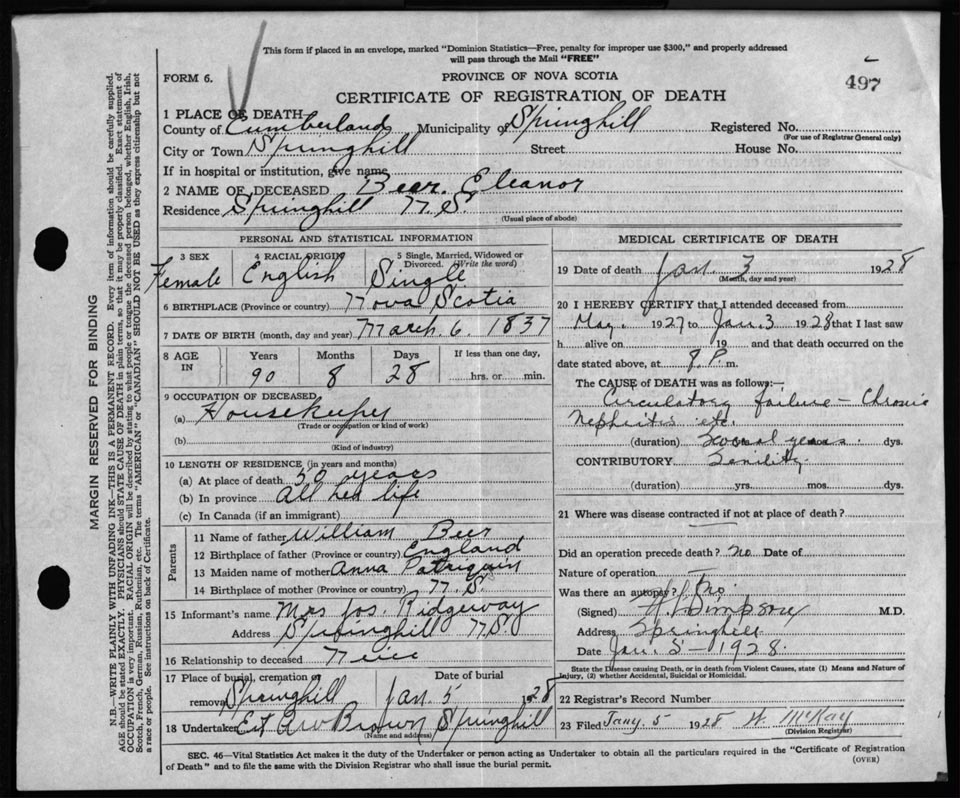 This form if placed in an envelope, marked "Dominion Statistics—Free, penalty for improper use $300," and properly addressed
will pass through the Mail "FREE"
FORM 6.
PROVINCE OF NOVA SCOTIA
497
CERTIFICATE OF REGISTRATION OF DEATH
1 PLACE OF DEATH
County of Cumberland Municipality of Springhill Registered No.
(For use of Registrar General only)
City or Town Springhill Street House No.
If in hospital or institution, give name
2 NAME OF DECEASED Beer. Eleanor
Residence Springhill N.S.
(Usual place of abode)
PERSONAL AND STATISTICAL INFORMATION
3 SEX 4 RACIAL ORIGIN 5 Single, Married, Widowed or Divorced. (Write the word)
Female English Single
6 BIRTHPLACE (Province or country) Nova Scotia
7 DATE OF BIRTH (month, day and year) March 6. 1837
8 AGE IN Years Months Days If less than one day,
90 8 28 hrs. or min.
9 OCCUPATION OF DECEASED
(a) Housekeeper
(Trade or occupation or kind of work)
(b)
(Kind of industry)
10 LENGTH OF RESIDENCE (in years and months)
(a) At place of death 50 years
(b) In province All her life
(c) In Canada (if an immigrant)
Parents
11 Name of father William Beer
12 Birthplace of father (Province or country) England
13 Maiden name of mother Anna Patriquin
14 Birthplace of mother (Province or country) N.S.
15 Informant's name Mrs Jos. Ridgeway
Address Springhill N.S.
16 Relationship to deceased Neice
17 Place of burial, cremation or removal Springhill Date of burial Jan. 5 1928
18 Undertaker Brown Springhill
(Name and address)
MEDICAL CERTIFICATE OF DEATH
19 Date of death Jan. 3 1928
(Month, day and year)
20 I HEREBY CERTIFY that I attended deceased from
May. 1927 to Jan. 3 1928 that I last saw
h alive on 19 and that death occurred on the
date stated above, at 8 P. m.
The CAUSE of DEATH was as follows:—
Circulatory failure — Chronic
Nephritis etc.
(duration) years. dys.
CONTRIBUTORY Senility
(duration) yrs. mos. dys.
21 Where was disease contracted if not at place of death?
Did an operation precede death? no Date of
Nature of operation
Was there an autopsy? no
(Signed) Simpson M.D.
Address Springhill
Date Jan. 5 — 1928.
State the Disease causing Death, or in death from Violent Causes, state (1) Means and Nature of
Injury, (2) whether Accidental, Suicidal or Homicidal.
22 Registrar's Record Number
23 Filed Jany. 5 1928 H. McKay
(Division Registrar)
SEC. 46—Vital Statistics Act makes it the duty of the Undertaker or person acting as Undertaker to obtain all the particulars required in the "Certificate of Registration
of Death" and to file the same with the Division Registrar who shall issue the burial permit.
(OVER)
MARGIN RESERVED FOR BINDING
N.B.—WRITE PLAINLY WITH UNFADING INK—THIS IS A PERMANENT RECORD. Every item of information should be carefully supplied.
AGE should be stated EXACTLY. PHYSICIANS should STATE CAUSE OF DEATH in plain terms, so that it may be properly classified. Exact statement of
OCCUPATION is very important. RACIAL ORIGIN will be described by stating to what people or tongue the deceased person belonged, whether English, Irish,
Scotch, French, German, Russian, Ruthenian, etc. The terms "AMERICAN" or "CANADIAN" SHOULD NOT BE USED as they express citizenship but not
a race or people. See instructions on back of Certificate.